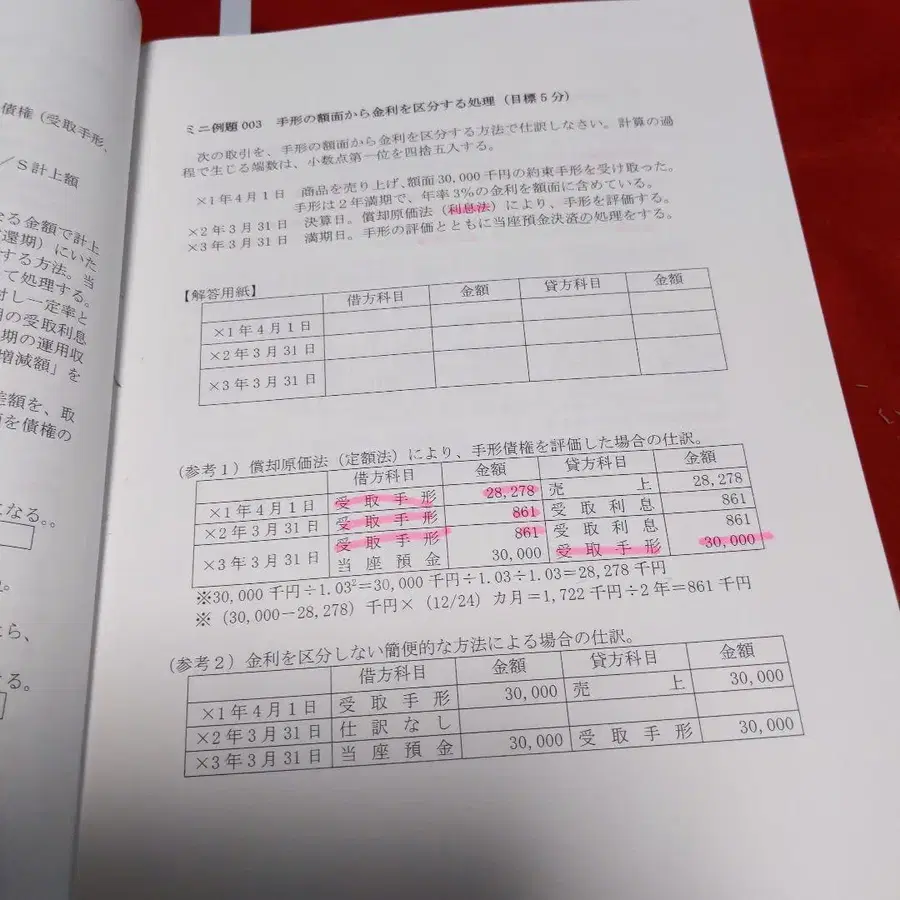 債権(受取手形、
/S計上額
なる金額で計上
還期)にいた
する方法。当
て処理する。
対し一定率と
用の受取利息
期の運用収
増減額」を
差額を、取
を債権の
になる。。
。
たら、
する。
ミニ例題003 手形の額面から金利を区分する処理(目標5分)
次の取引を、手形の額面から金利を区分する方法で仕訳しなさい。計算の過
程で生じる端数は、小数点第一位を四捨五入する。
×1年4月1日 商品を売り上げ、額面30,000千円の約束手形を受け取った。
手形は2年満期で、年率3%の金利を額面に含めている。
×2年3月31日 決算日。償却原価法(利息法)により、手形を評価する。
×3年3月31日 満期日。手形の評価とともに当座預金決済の処理をする。
【解答用紙】
借方科目 金額 貸方科目 金額
×1年4月1日
×2年3月31日
×3年3月31日
(参考1)償却原価法(定額法)により、手形債権を評価した場合の仕訳。
借方科目 金額 貸方科目 金額
×1年4月1日 受取手形 28,278 売上 28,278
×2年3月31日 受取手形 861 受取利息 861
×3年3月31日 受取手形 861 受取利息 861
当座預金 30,000 受取手形 30,000
※30,000千円÷1.03²=30,000千円÷1.03÷1.03=28,278千円
※(30,000-28,278)千円×(12/24)カ月=1,722千円÷2年=861千円
(参考2)金利を区分しない簡便的な方法による場合の仕訳。
借方科目 金額 貸方科目 金額
×1年4月1日 受取手形 30,000 売上 30,000
×2年3月31日 仕訳なし
×3年3月31日 当座預金 30,000 受取手形 30,000